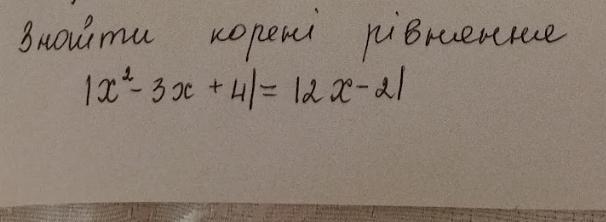 Знайти корені рівняння
|x² - 3x + 4| = |2x - 2|